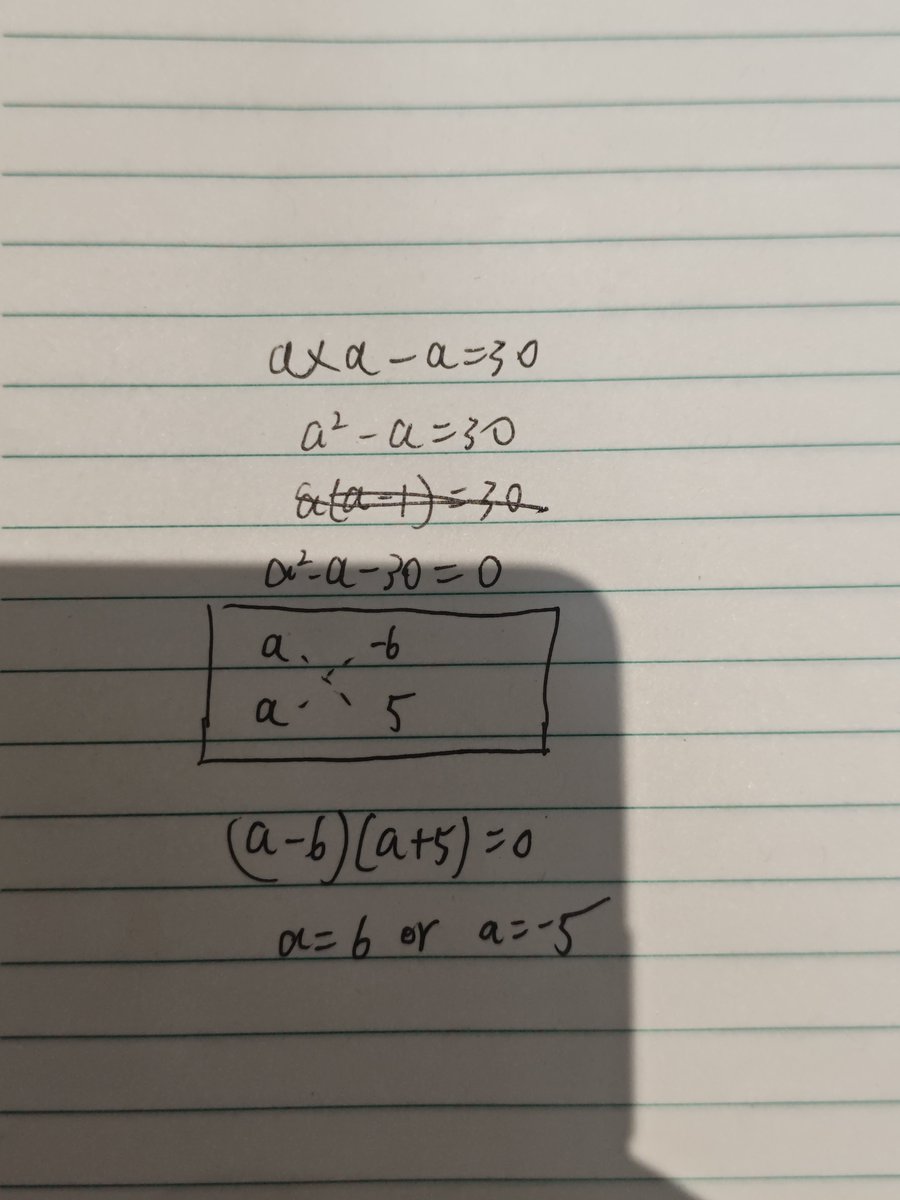 a×a-a=30
a²-a=30
a(a-1)=30
a²-a-30=0
a -6
a 5
(a-6)(a+5)=0
a=6 or a=-5